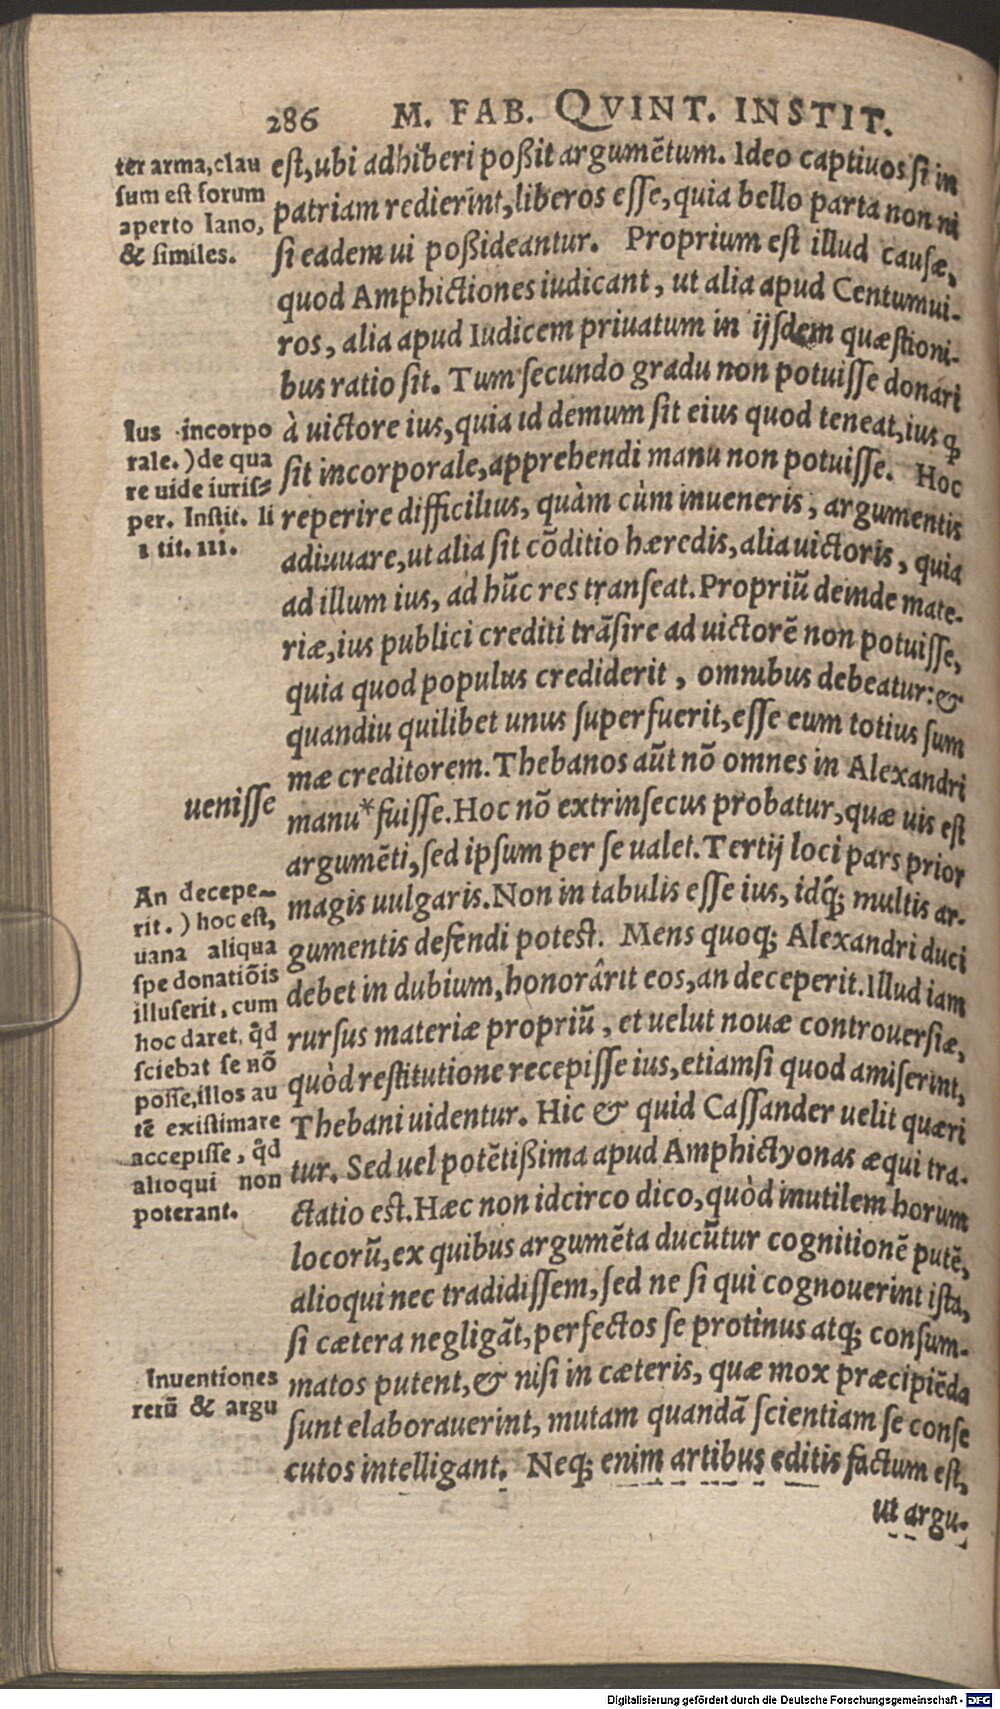 286 M. FAB. QVINT. INSTIT.
ter arma, clau
sum est forum
aperto Iano,
& similes.
est, ubi adhiberi poßit argumẽtum. Ideo captiuos si in
patriam redierint, liberos esse, quia bello parta non ni
si eadem ui poßideantur. Proprium est illud causæ,
quod Amphictiones iudicant, ut alia apud Centumui-
ros, alia apud Iudicem priuatum in ijsdem quæstioni-
bus ratio sit. Tum secundo gradu non potuisse donari
Ius incorpo
rale.) de qua
re uide iuris-
per. Instit. li
1 tit. III.
à uictore ius, quia id demum sit eius quod teneat, ius q̃
sit incorporale, apprehendi manu non potuisse. Hoc
reperire difficilius, quàm cùm inueneris, argumentis
adiuuare, ut alia sit cõditio hæredis, alia uictoris, quia
ad illum ius, ad hũc res transeat. Propriũ deinde mate-
riæ, ius publici crediti trãsire ad uictorẽ non potuisse,
quia quod populus crediderit, omnibus debeatur: &
quandiu quilibet unus superfuerit, esse eum totius sum
mæ creditorem. Thebanos aũt nõ omnes in Alexandri
uenisse
manu* fuisse. Hoc nõ extrinsecus probatur, quæ uis est
argumẽti, sed ipsum per se ualet. Tertij loci pars prior
An decepe-
rit.) hoc est,
uana aliqua
spe donatiõis
illuserit, cum
hoc daret, q̃d
sciebat se nõ
posse, illos au
tẽ existimare
accepisse, q̃d
alioqui non
poterant.
magis uulgaris. Non in tabulis esse ius, idq́; multis ar-
gumentis defendi potest. Mens quoq; Alexandri duci
debet in dubium, honorârit eos, an deceperit. Illud iam
rursus materiæ propriũ, et uelut nouæ controuersiæ,
quòd restitutione recepisse ius, etiamsi quod amiserint,
Thebani uidentur. Hic & quid Cassander uelit quæri
tur. Sed uel potẽtißima apud Amphictyonas æqui tra-
ctatio est. Hæc non idcirco dico, quòd inutilem horum
locorũ, ex quibus argumẽta ducũtur cognitionẽ putẽ,
alioqui nec tradidissem, sed ne si qui cognouerint ista,
si cætera negligãt, perfectos se protinus atq; consum-
Inuentiones
rerũ & argu
matos putent, & nisi in cæteris, quæ mox præcipiẽda
sunt elaborauerint, mutam quandã scientiam se conse
cutos intelligant. Neq; enim artibus editis factum est,
ut argu-
Digitalisierung gefördert durch die Deutsche Forschungsgemeinschaft - DFG